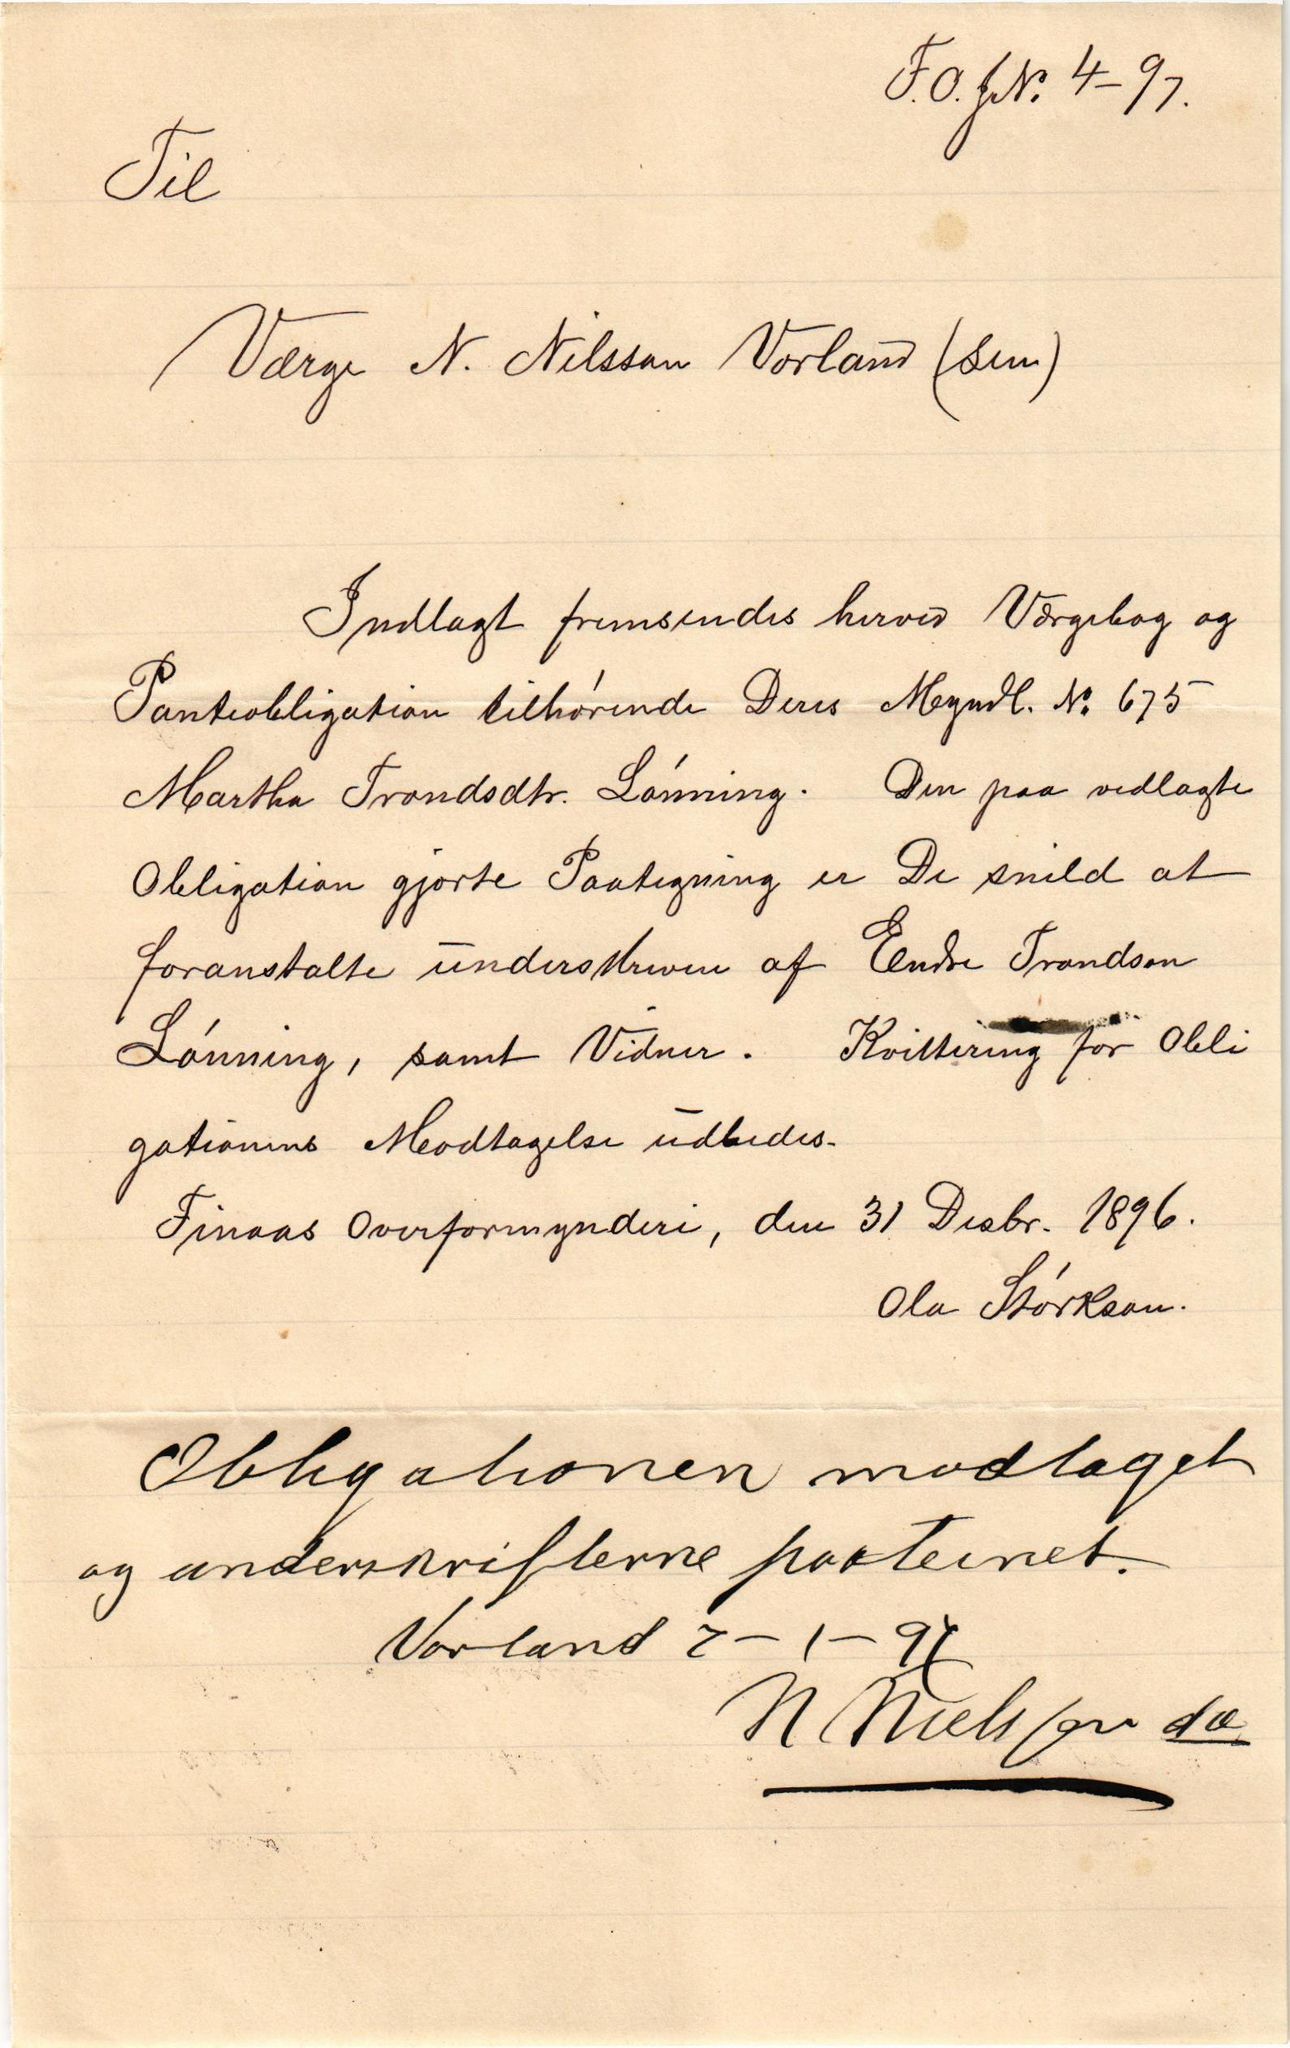 F.O. J.N.º 4-97.
Til
Værge N. Nilsson Vorland (sen)
Indlagt fremsendes herved Værgebog og
Panteobligation tilhørende Deres Myndl. Nº 675
Martha Trondsdtr. Lønning. Den paa vedlagte
Obligation gjorte Paategning er De snild at
foranstalte underskreven af Endre Trondson
Lønning, samt Vidner. Kvittering for Obli
gationens Modtagelse udbedes.
Finaas Overformynderi, den 31 Desbr. 1896.
Ola Størkson.
Obligationen modtaget
og underskrifterne paateinet.
Vorland 7-1-97
N Nielsson